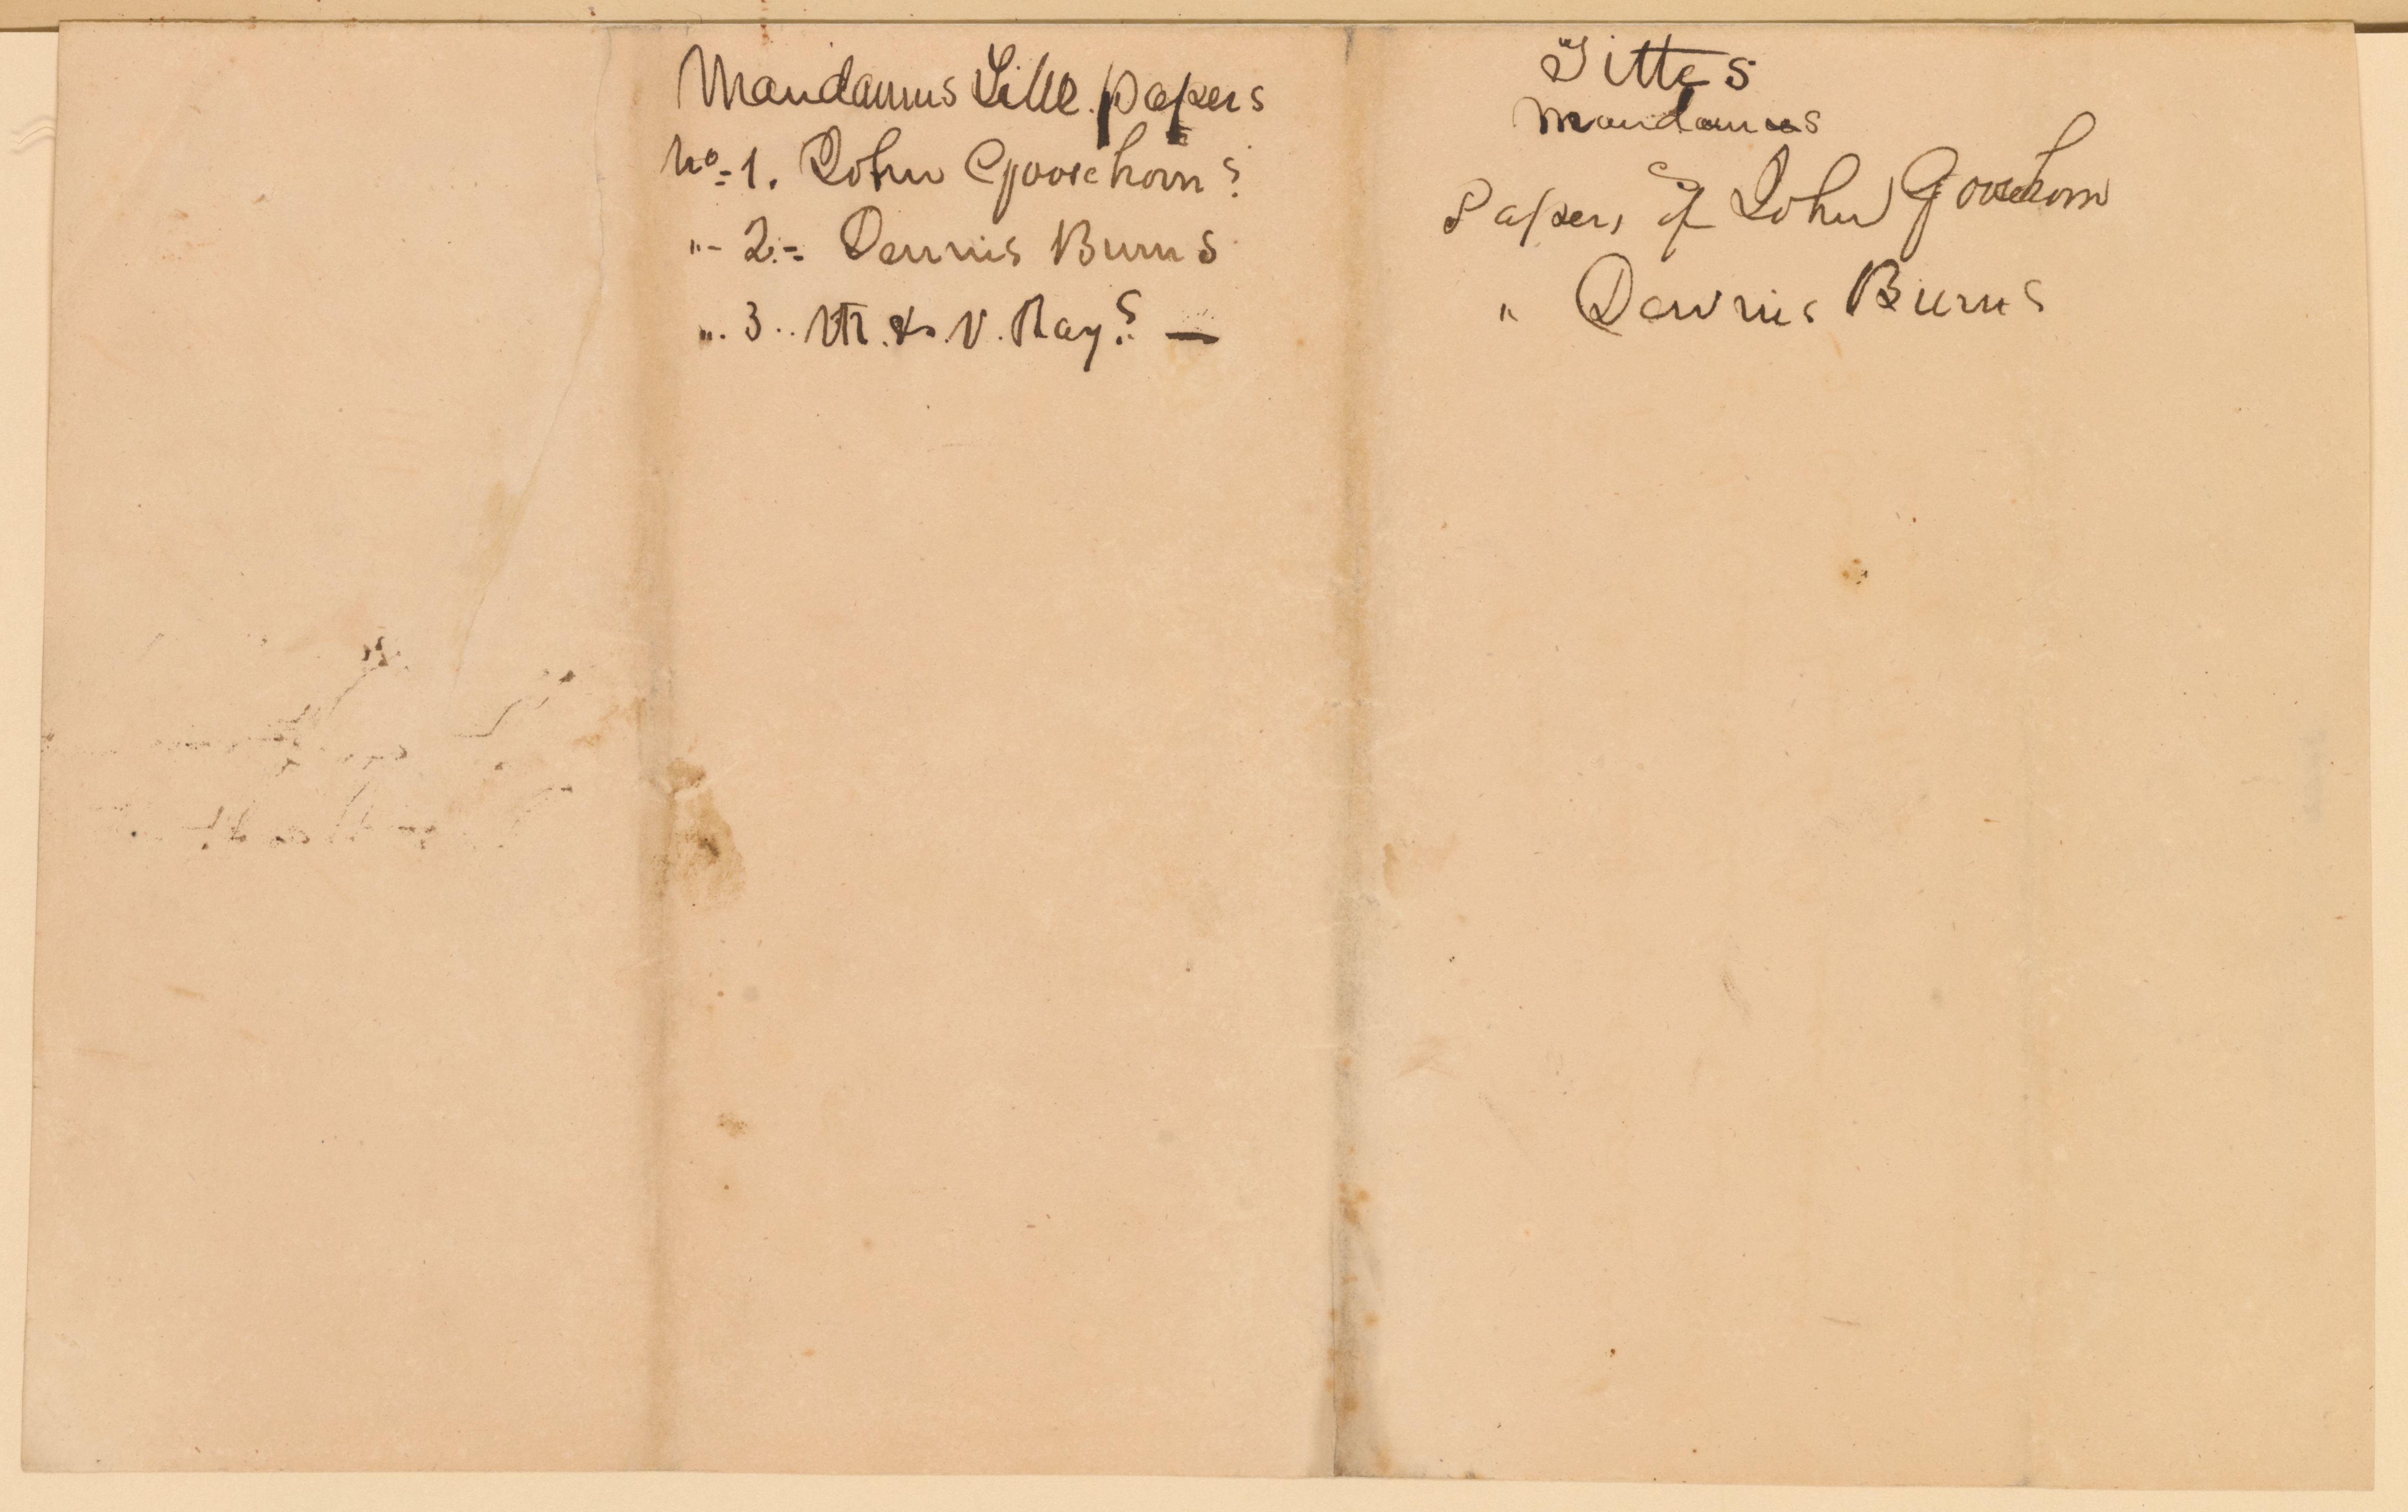 Mandamus Title papers
No= 1. John Goosehorn:s
"- 2.= Dennis Burns
". 3.. M. & V. Ray:s —
Tittes
Mandamus
Papers of John Goosehorn
" Dennis Burns